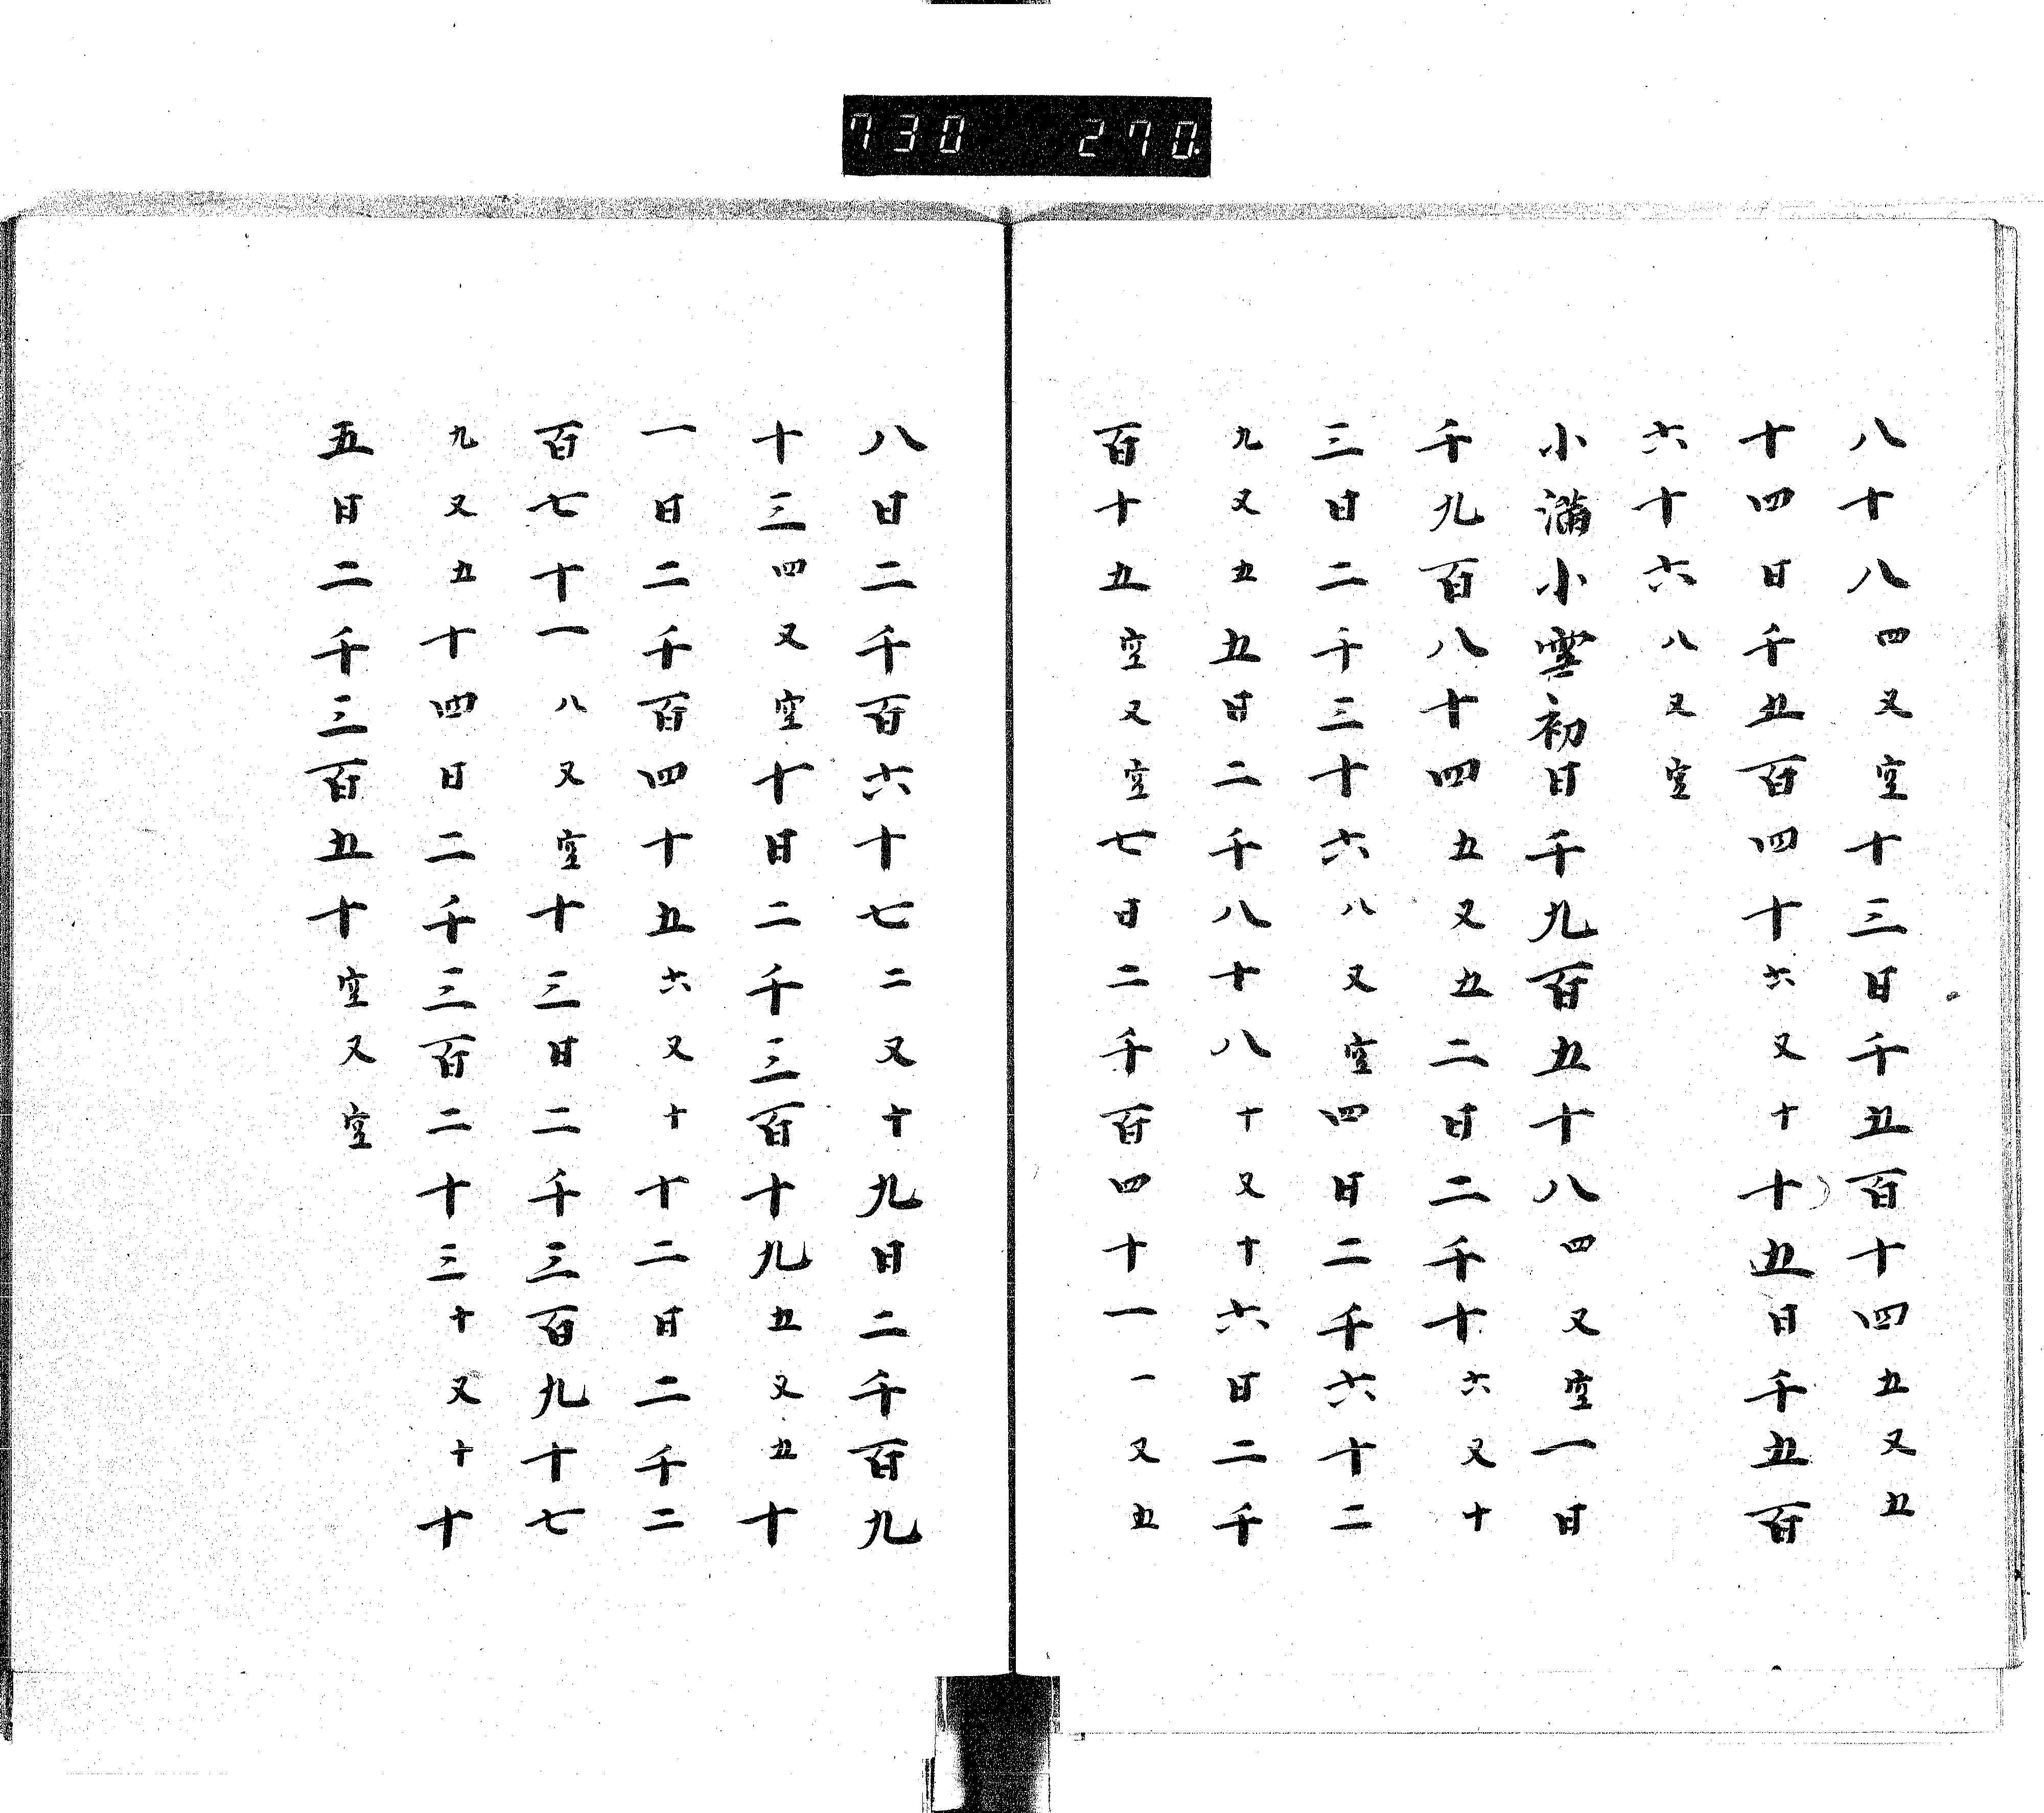 730 270.
八十八四又空十三日千五百十四五又五
十四日千五百四十六又十十五日千五百
六十六八又空
小滿小雪初日千九百五十八四又空一日
千九百八十四五又五二日二千十六又十
三日二千三十六八又空四日二千六十二
九又五五日二千八十八十又十六日二千
百十五空又空七日二千百四十一一又五
八日二千百六十七二又十九日二千百九
十三四又空十日二千三百十九五又五十
一日二千百四十五六又十十二日二千二
百七十一八又空十三日二千三百九十七
九又五十四日二千三百二十三十又十十
五日二千三百五十空又空